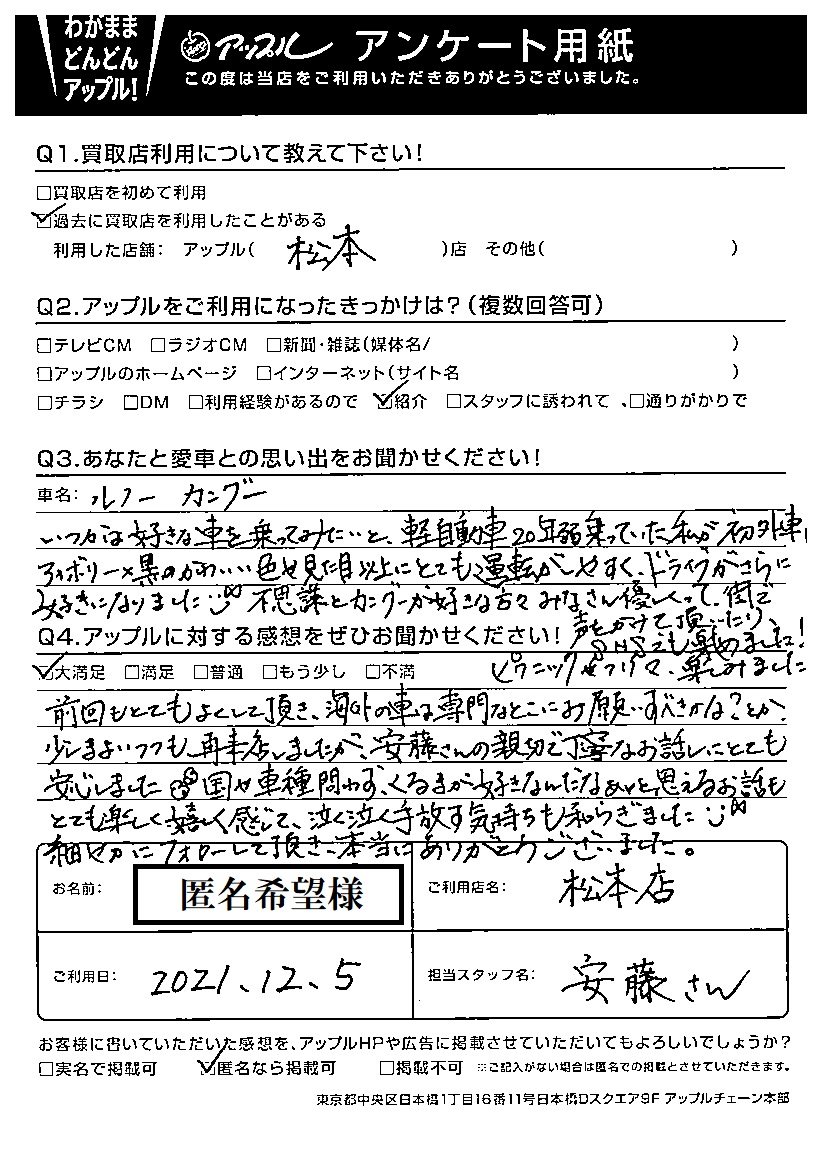 わがまま
どんどん
アップル!
アップル アンケート用紙
この度は当店をご利用いただきありがとうございました。
Q1.買取店利用について教えて下さい!
□買取店を初めて利用
☑過去に買取店を利用したことがある
利用した店舗: アップル( 松本 )店 その他( )
Q2.アップルをご利用になったきっかけは?(複数回答可)
□テレビCM □ラジオCM □新聞・雑誌(媒体名/ )
□アップルのホームページ □インターネット(サイト名 )
□チラシ □DM □利用経験があるので ☑紹介 □スタッフに誘われて 、□通りがかりで
Q3.あなたと愛車との思い出をお聞かせください!
車名: ルノー カングー
いつかは好きな車を乗ってみたいと、軽自動車20年弱乗っていた私が初外車!
アイボリー×黒のかわいい色や見た目以上にとても運転がしやすく、ドライブがさらに
好きになりました 不思議とカングーが好きな方々みなさん優しくって、街で
声をかけて頂いたり、
SNSでも絡めました!
ピクニックやフリマ、楽しみました
Q4.アップルに対する感想をぜひお聞かせください!
☑大満足 □満足 □普通 □もう少し □不満
前回もとてもよくして頂き、海外の車は専門なとこにお願いすべきかな?とか、
少しまよいつつも、再来店しましたが、安藤さんの親切で丁寧なお話しにとても
安心しました 国や車種問わず、くるまが好きなんだなぁいと思えるお話も
とても楽しく嬉しく感じて、泣く泣く手放す気持ちも和らぎました
細やかにフォローして頂き、本当にありがとうございました。
お名前: 匿名希望様
ご利用店名: 松本店
ご利用日: 2021.12.5
担当スタッフ名: 安藤さん
お客様に書いていただいた感想を、アップルHPや広告に掲載させていただいてもよろしいでしょうか?
□実名で掲載可 ☑匿名なら掲載可 □掲載不可 ※ご記入がない場合は匿名での掲載とさせていただきます。
東京都中央区日本橋1丁目16番11号日本橋Dスクエア9F アップルチェーン本部